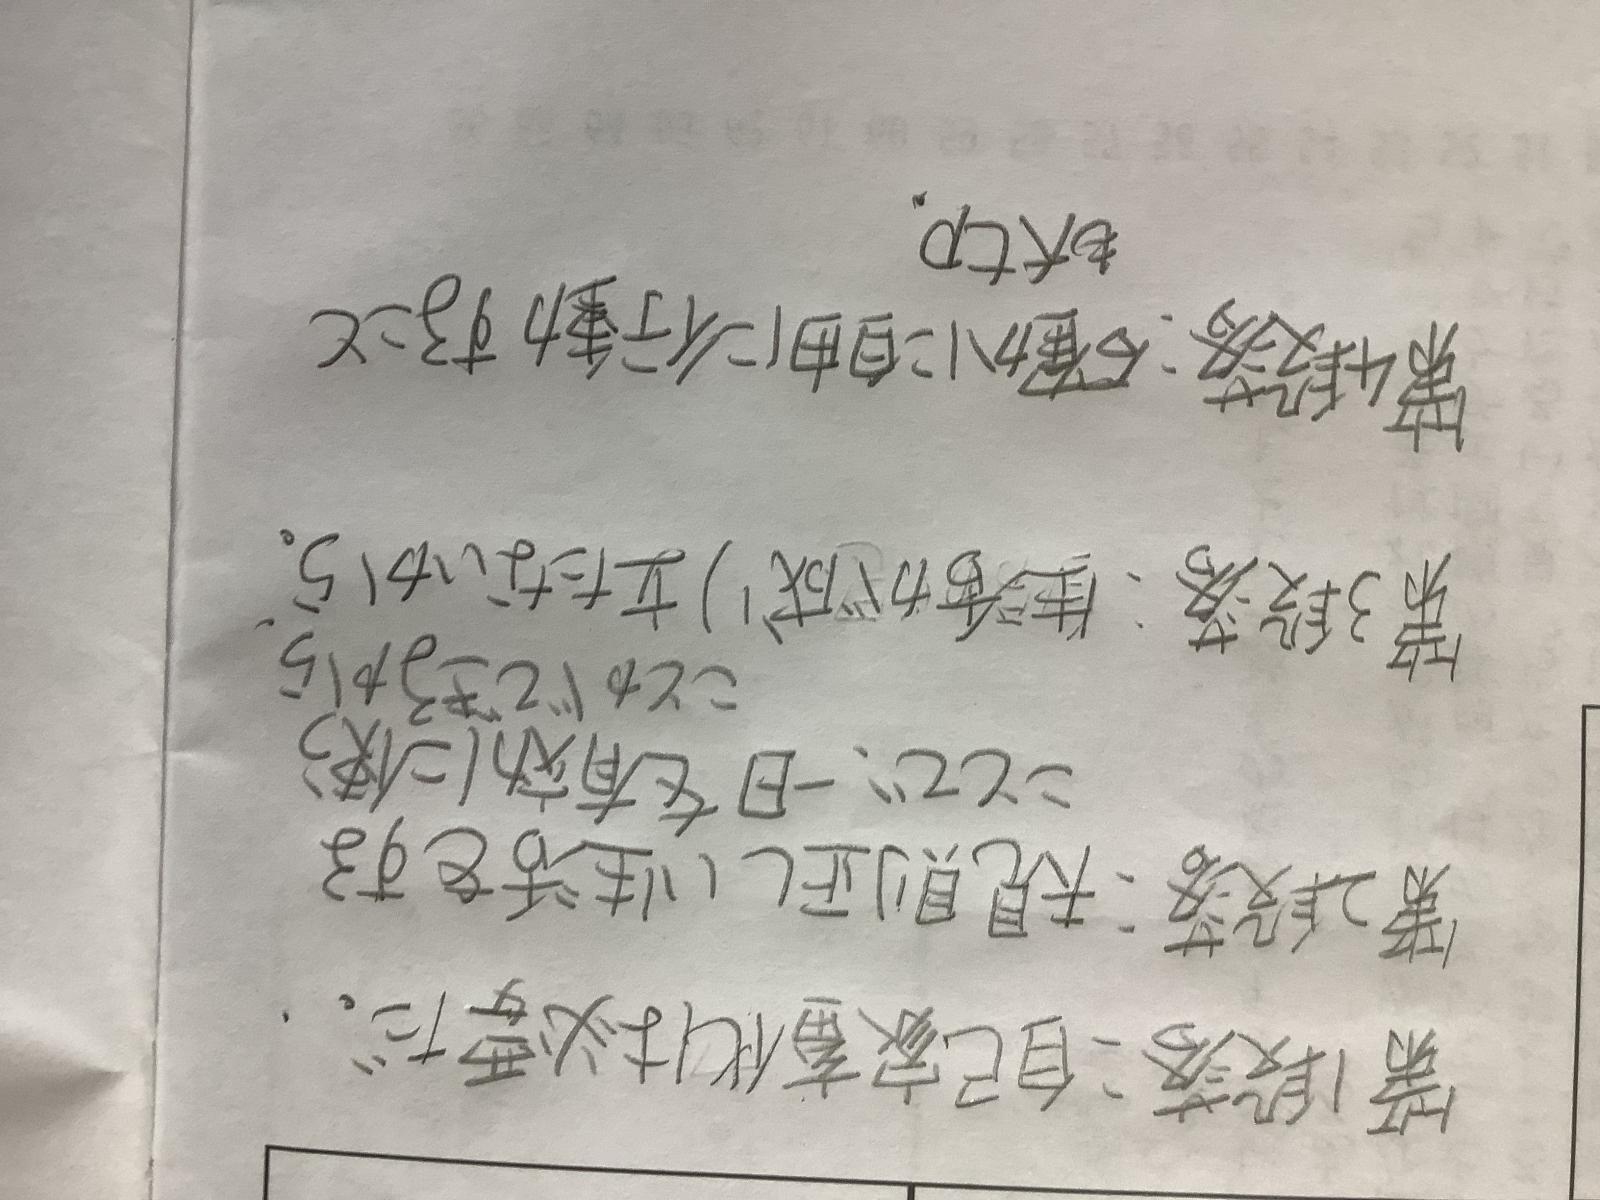 第1段落：自己家畜化は必要だ。
第2段落：規則正しい生活をする
ことで、一日を有効に使う
ことができるから
第3段落：生活が成り立たないから。
第4段落：確かに自由に行動すること
も大切.